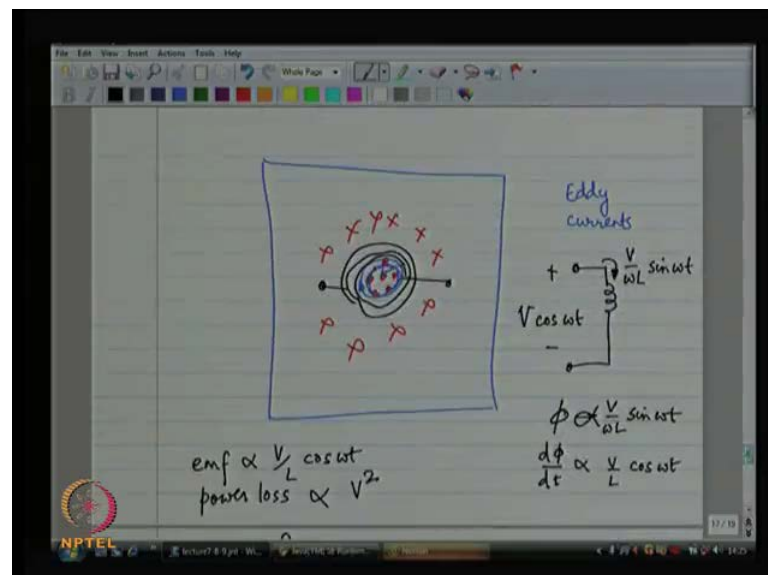 File Edit View Insert Actions Tools Help
Whole Page
B I
Eddy
currents
+ V/ωL sin ωt
V cos ωt
−
ϕ ∝ V/ωL sin ωt
dϕ/dt ∝ V/L cos ωt
emf ∝ V/L cos ωt
power loss ∝ V²
17/19
NPTEL
14:25